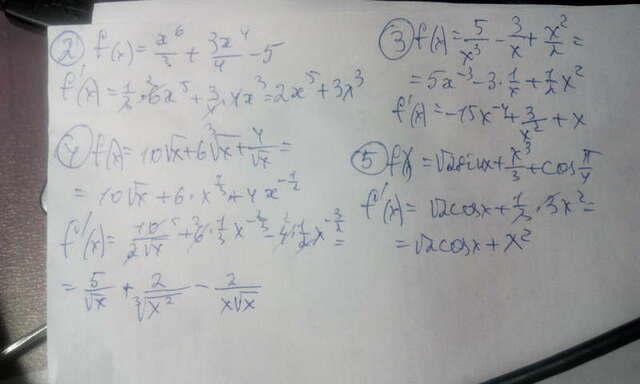 ② f(x) = x⁶/3 + 3x⁴/4 - 5
f'(x) = 1/3 · 6x⁵ + 3/4 · 4x³ = 2x⁵ + 3x³
④ f(x) = 10√x + 6∛x + 4/√x =
= 10√x + 6 · x^(1/3) + 4x^(-1/2)
f'(x) = 10/(2√x) + 6 · 1/3 x^(-2/3) - 4 · 1/2 x^(-3/2) =
= 5/√x + 2/∛(x²) - 2/(x√x)
③ f(x) = 5/x³ - 3/x + x²/2 =
= 5x⁻³ - 3 · 1/x + 1/2 x²
f'(x) = -15x⁻⁴ + 3/x² + x
⑤ f(x) = √2 sinx + x³/3 + cos π/4
f'(x) = √2 cosx + 1/3 · 3x² =
= √2 cosx + x²